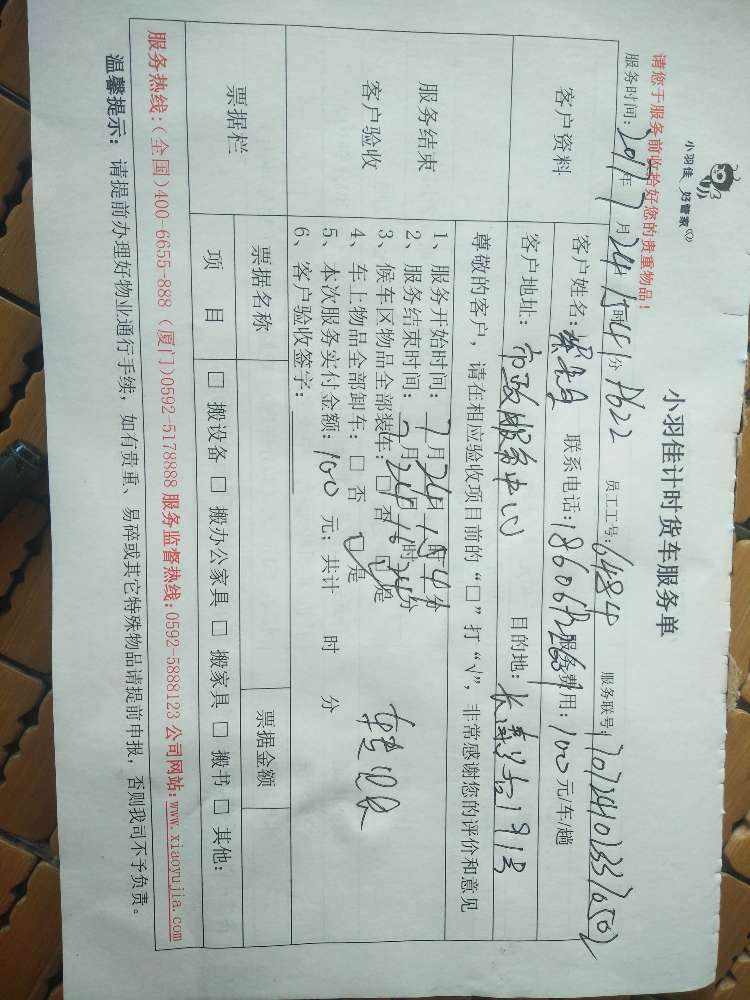 小羽佳 好管家
小羽佳计时货车服务单
请您于服务前收拾好您的贵重物品！
服务时间：2017年7月24 15时41分 员工工号：6484 服务联号：
客户资料
客户姓名： 联系电话： 服务费用：100元/车/趟
客户地址：市政服务中心 目的地：
尊敬的客户，请在相应验收项目前的“□”打“√”，非常感谢您的评价和意见
服务结束
客户验收
1、服务开始时间：7月24 15时41分
2、服务结束时间：7月24 16时 分
3、候车区物品全部装车：□ 否 □ 是
4、车上物品全部卸车：□ 否 □ 是
5、本次服务实付金额：100 元；共计 时 分
6、客户验收签字：
票据栏
票据名称 票据金额
项 目 □ 搬设备 □ 搬办公家具 □ 搬家具 □ 搬书 □ 其他：
服务热线：（全国）400-6655-888（厦门）0592-5178888 服务监督热线：0592-5888123 公司网站：www.xiaoyujia.com
温馨提示：请提前办理好物业通行手续，如有贵重、易碎或其它特殊物品请提前申报，否则我司不予负责。